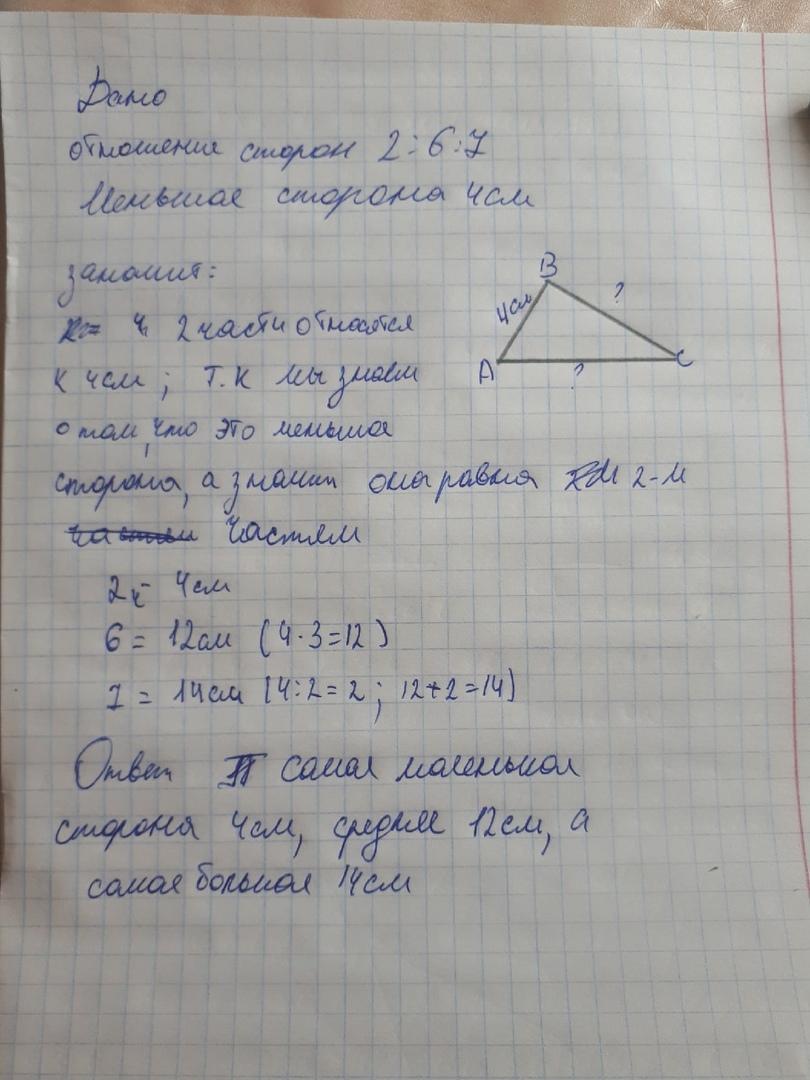 Дано
отношение сторон 2:6:7
Меньшая сторона 4см
значит:
2 части относятся
к 4см; т.к мы знаем
о том, что это меньшая
сторона, а значит она равна 2-м
частям
2 = 4см
6 = 12см (4·3=12)
7 = 14см (4:2=2; 12+2=14)
Ответ самая маленькая
сторона 4см, средняя 12см, а
самая большая 14см
B
4см
?
A
?
C